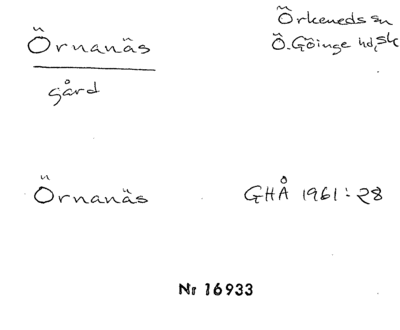 Örnanäs
gård
Örkeneds sn
Ö. Göinge hd, Sk
Örnanäs
GHÅ 1961:28
Nr 16933